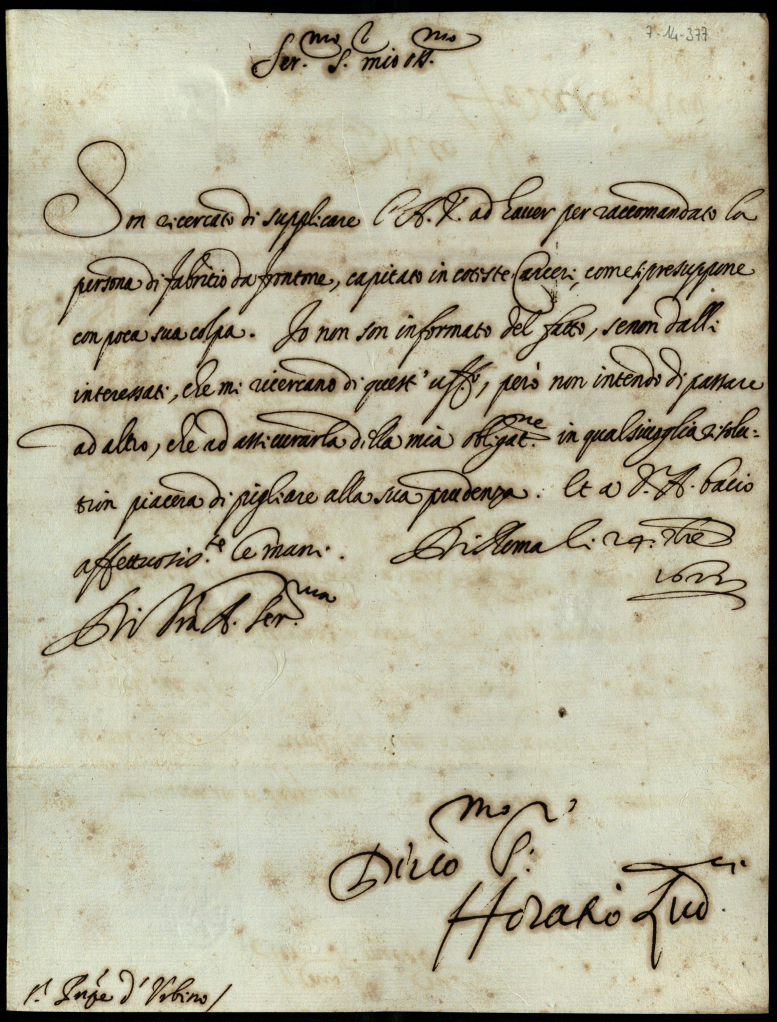 7-14-377
Ser.mo S.r mio oss.mo
Son ricercato di supplicare l'A. V. ad hauer per raccomandato la
persona di fabritio da frontone, capitato in coteste Carceri, come si presuppone
con poca sua colpa. Io non son informato del fatto, se non dalli
interessati, che mi ricercano di quest' uff.o, però non intendo di passare
ad altro, che ad assicurarla della mia obligat.ne in qualsiuoglia risolu-
tion piacerà di pigliare alla sua prudenza. Et a V. A. bacio
affettuosis.te le mani. Di Roma li 24. 7bre
1622
Di Vra A. Ser.ma
Dev.mo S.r
Horatio Lud.ci
S.r Prñpe d' Vrbino